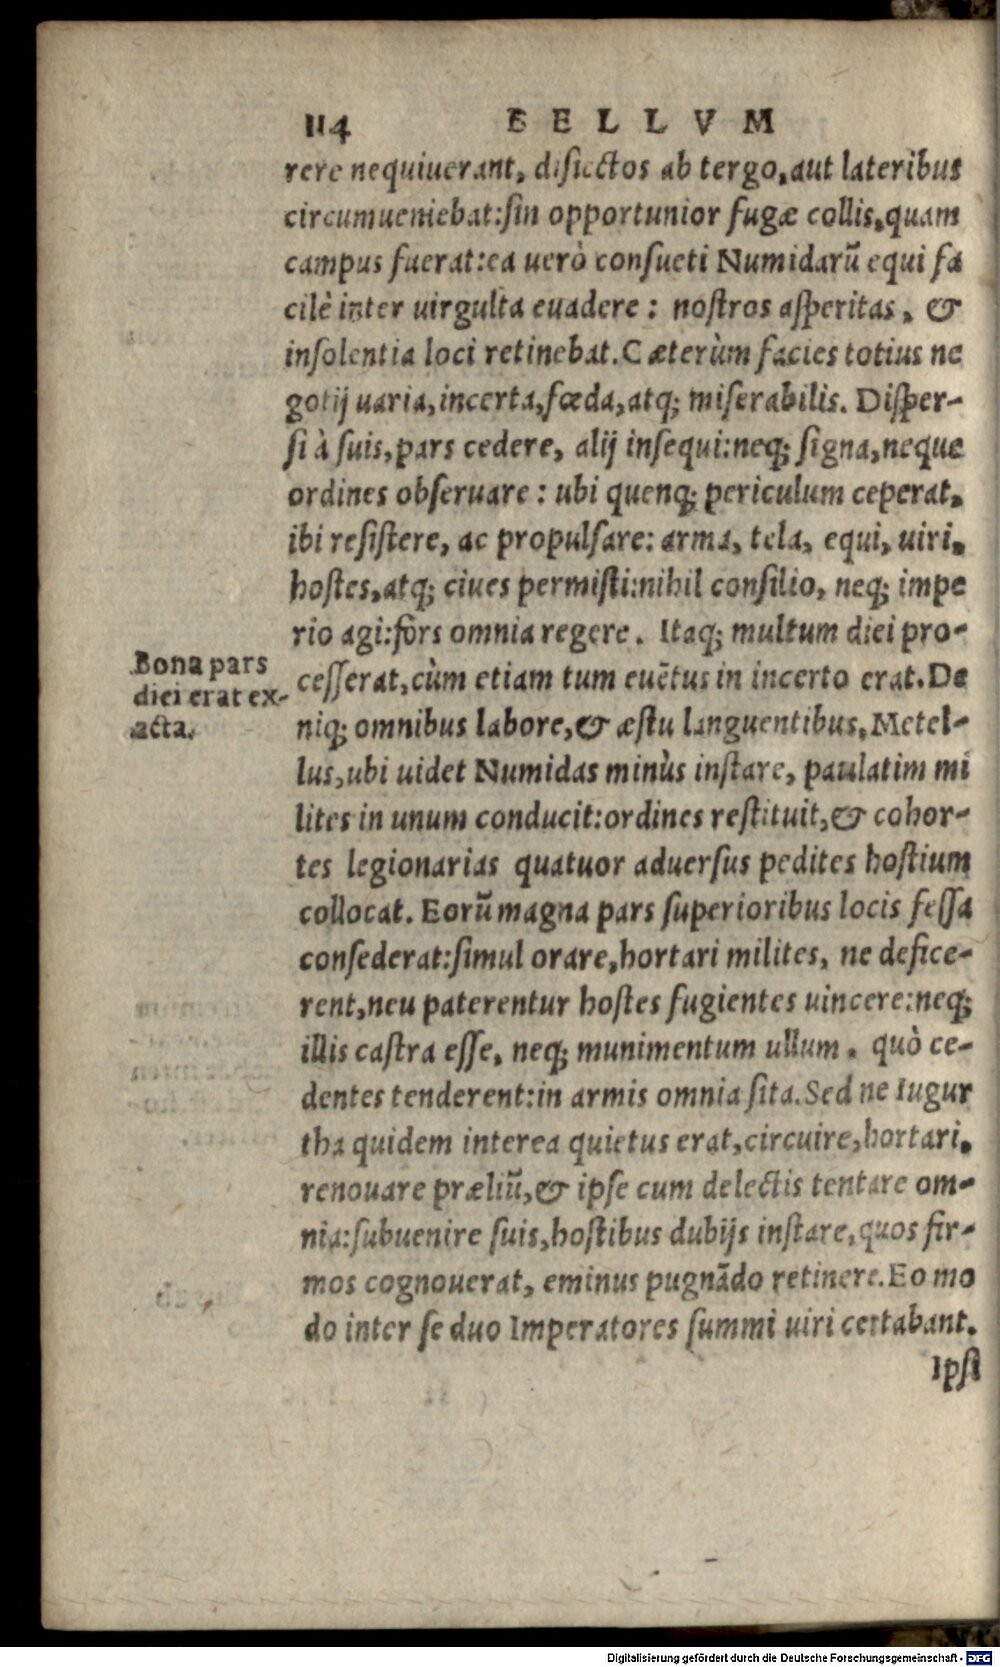 114 BELLVM
rere nequiuerant, disiectos ab tergo, aut lateribus
circumueniebat: sin opportunior fugæ collis, quam
campus fuerat: ea uerò consueti Numidarū equi fa
cilè inter uirgulta euadere: nostros asperitas, &
insolentia loci retinebat. Cæterùm facies totius ne
gotij uaria, incerta, fœda, atq; miserabilis. Disper-
si à suis, pars cedere, alij insequi: neq; signa, neque
ordines obseruare: ubi quenq; periculum ceperat,
ibi resistere, ac propulsare: arma, tela, equi, uiri,
hostes, atq; ciues permisti: nihil consilio, neq; impe
rio agi: fors omnia regere. Itaq; multum diei pro-
Bona pars
diei erat ex-
acta.
cesserat, cùm etiam tum euētus in incerto erat. De
niq; omnibus labore, & æstu languentibus, Metel-
lus, ubi uidet Numidas minùs instare, paulatim mi
lites in unum conducit: ordines restituit, & cohor-
tes legionarias quatuor aduersus pedites hostium
collocat. Eorū magna pars superioribus locis fessa
consederat: simul orare, hortari milites, ne defice-
rent, neu paterentur hostes fugientes uincere: neq;
illis castra esse, neq; munimentum ullum, quò ce-
dentes tenderent: in armis omnia sita. Sed ne Iugur
tha quidem interea quietus erat, circuire, hortari,
renouare præliū, & ipse cum delectis tentare om-
nia: subuenire suis, hostibus dubijs instare, quos fir-
mos cognouerat, eminus pugnādo retinere. Eo mo
do inter se duo Imperatores summi uiri certabant.
Ipsi
Digitalisierung gefördert durch die Deutsche Forschungsgemeinschaft - DFG